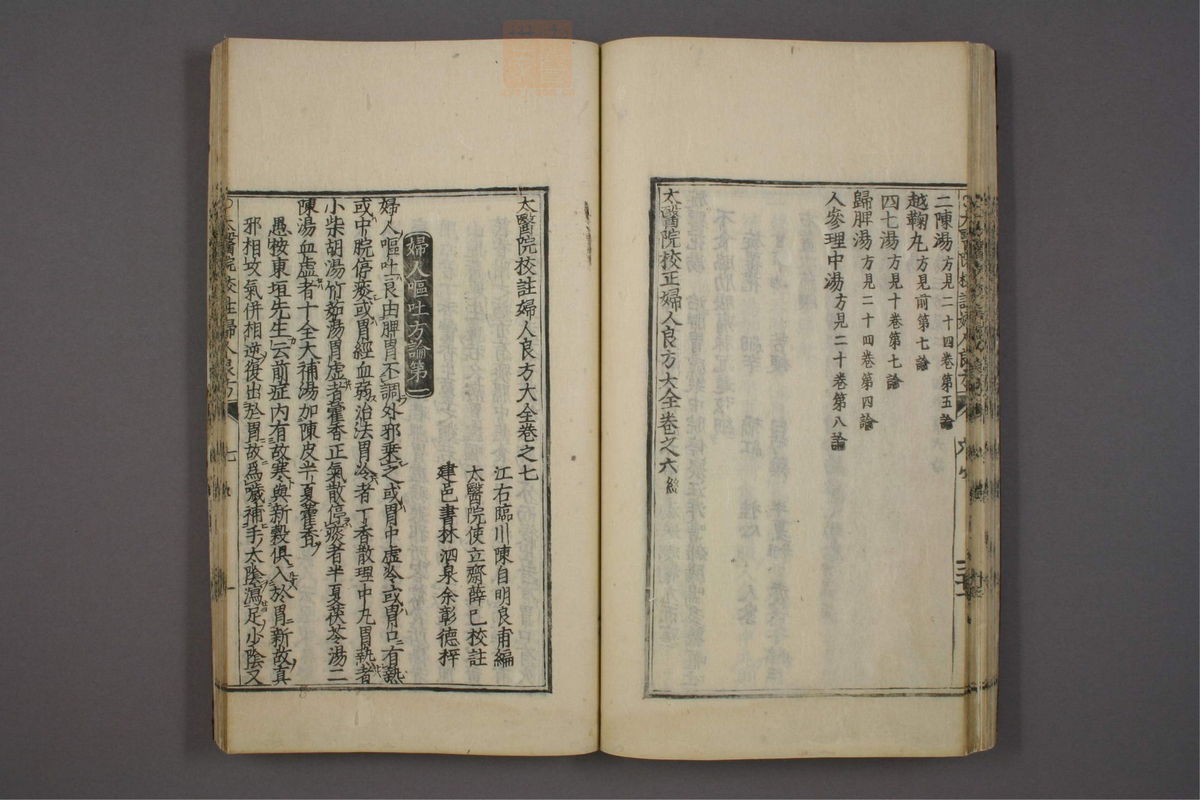 二陳湯方見二十四卷第五論
越鞠丸方見前第七論
四七湯方見十卷第七論
歸脾湯方見二十四卷第四論
人參理中湯方見二十卷第八論
太醫院校正婦人良方大全卷之六終
太醫院校註婦人良方大全卷之七
江右臨川陳自明良甫編
太醫院使立齋薛己校註
建邑書林泗泉余彰德梓
婦人嘔吐方論第一
婦人嘔吐良由脾胃不調外邪乘之或胃中虛冷或胃口有熱
或中脘停痰或胃經血弱治法胃冷者丁香散理中丸胃熱者
小柴胡湯竹茹湯胃虛者藿香正氣散停痰者半夏茯苓湯二
陳湯血虛者十全大補湯加陳皮半夏藿香
愚按東垣先生云前症內有故寒與新穀俱入於胃新故真
邪相攻氣併相逆復出於胃故爲噦補手太陰瀉足少陰又
太醫院校註婦人良方 七 一